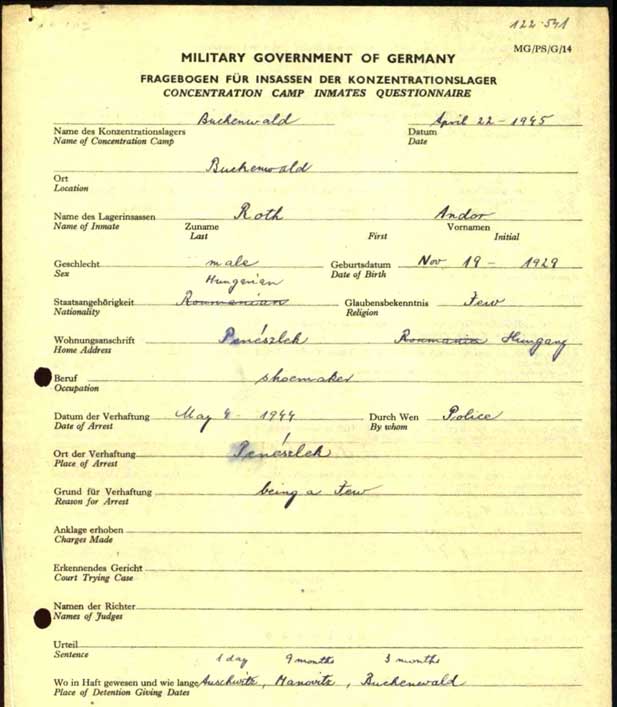 122-541
MG/PS/G/14
MILITARY GOVERNMENT OF GERMANY
FRAGEBOGEN FÜR INSASSEN DER KONZENTRATIONSLAGER
CONCENTRATION CAMP INMATES QUESTIONNAIRE
Buchenwald April 22 - 1945
Name des Konzentrationslagers Datum
Name of Concentration Camp Date
Buchenwald
Ort
Location
Name des Lagerinsassen Roth Andor
Name of Inmate Zuname Vornamen
Last First Initial
Geschlecht male Geburtsdatum Nov 19 - 1929
Sex Date of Birth
Hungarian
Staatsangehörigkeit Roumanian Glaubensbekenntnis Jew
Nationality Religion
Wohnungsanschrift Penészlek Roumania Hungary
Home Address
Beruf shoemaker
Occupation
Datum der Verhaftung May 4 - 1944 Durch Wen Police
Date of Arrest By whom
Ort der Verhaftung Penészlek
Place of Arrest
Grund für Verhaftung being a Jew
Reason for Arrest
Anklage erhoben
Charges Made
Erkennendes Gericht
Court Trying Case
Namen der Richter
Names of Judges
Urteil
Sentence
1 day 9 months 3 months
Wo in Haft gewesen und wie lange Auschwitz, Manovitz, Buchenwald
Place of Detention Giving Dates